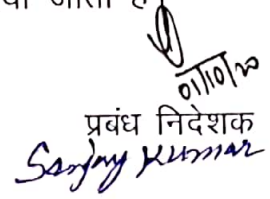 जाता है
01/10/20
प्रबंध निदेशक
Sanjay Kumar